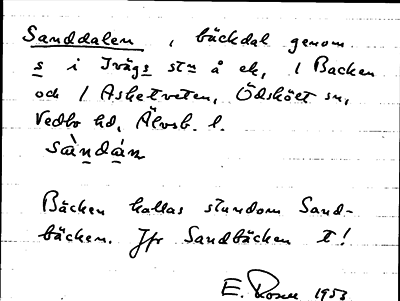 Sanddalen, bäckdal genom
s i Trägs stn å ek, 1 Backen
och 1 Asketveten, Ödskölt sn,
Vedbo hd, Älvsb. l.
sàndán
Bäcken kallas stundom Sand-
bäcken. Jfr Sandbäcken t!
E. Rosell 1953